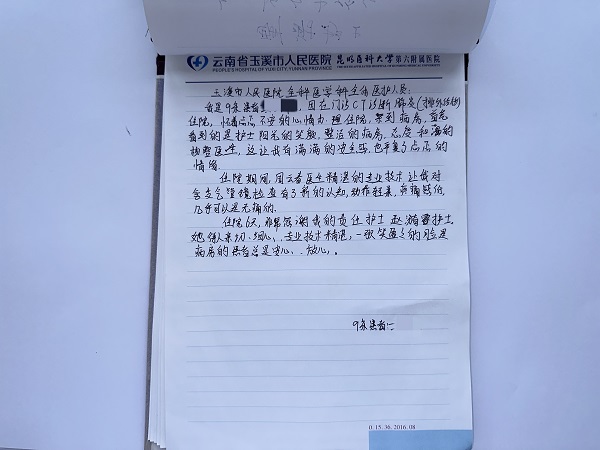 云南省玉溪市人民医院 昆明医科大学第六附属医院
PEOPLE'S HOSPITAL OF YUXI CITY, YUNNAN PROVINCE
玉溪市人民医院全科医学科全体医护人员:
我是9床患者 , 因在门诊CT诊断肺炎
住院, 怀着忐忑不安的心情办理住院, 来到病房, 首先
看到的是护士阳光的笑颜, 整洁的病房, 态度和蔼的
主管医生, 这让我有满满的安全感, 也平复了忐忑的
情绪。
住院期间, 医生精湛的专业技术让我对
支气管镜检查有了新的认知, 动作轻柔, 疼痛感低,
几乎可以是无痛的。
住院6天, 非常感谢我的责任护士 护士
她待人亲切、细心、专业技术精湛, 一张笑盈盈的脸是
病房的患者总是安心、放心。
9床患者
15.36.2016.08